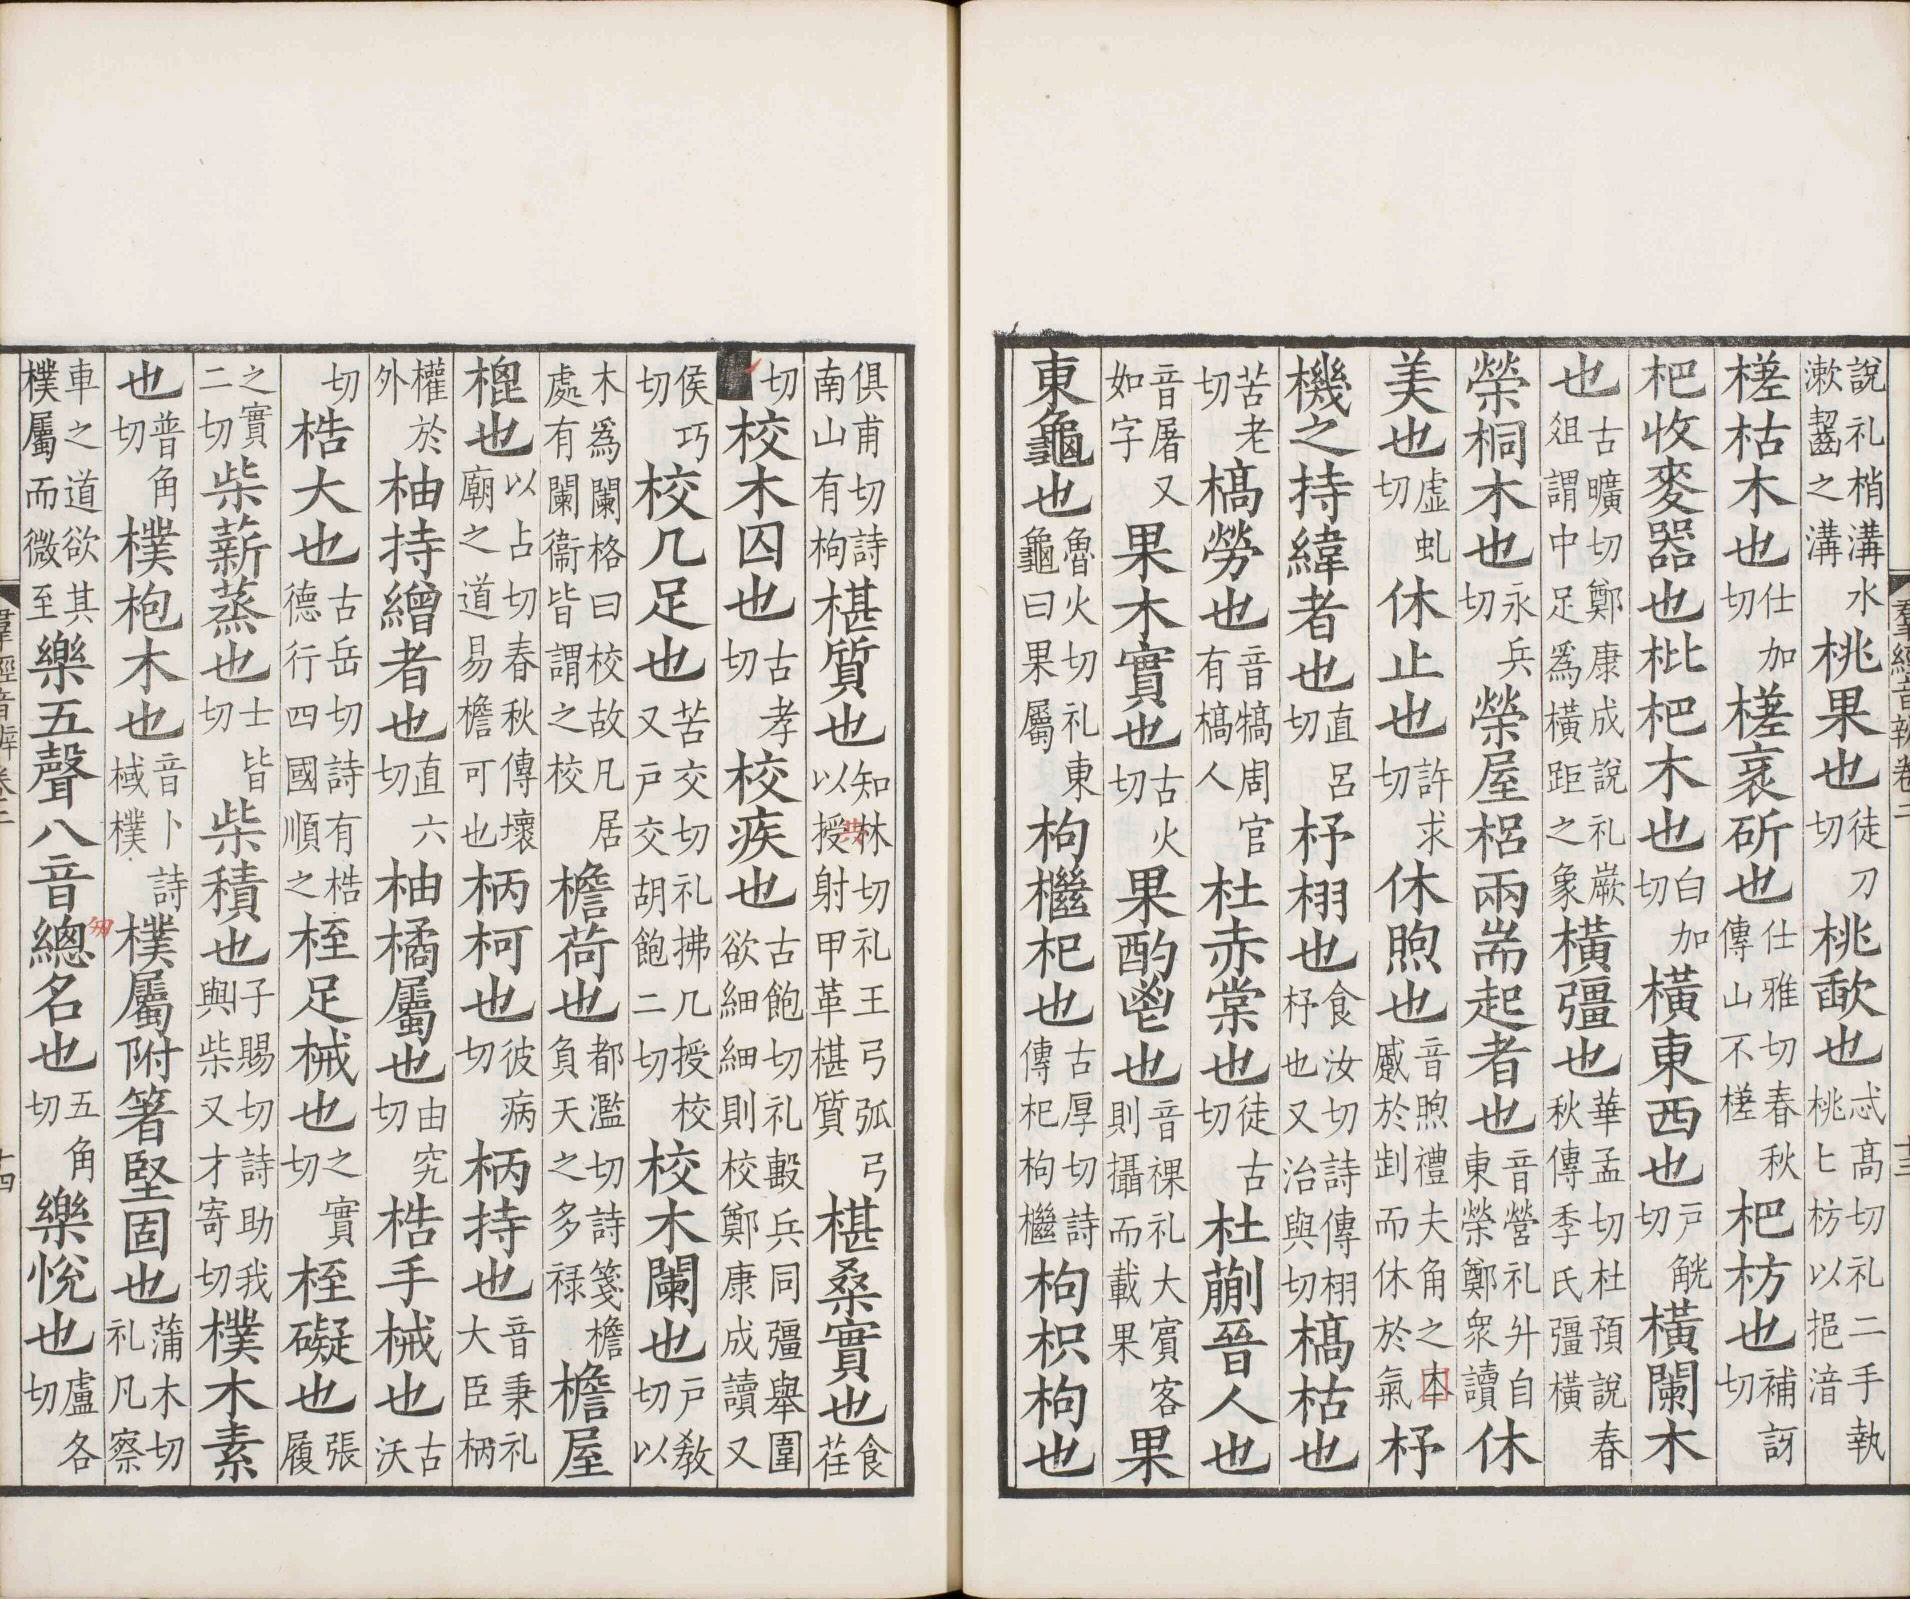 說礼梢溝水漱齧之溝桃果也徒刀切桃歃也忒髙切礼二手執桃匕枋以挹湆
槎枯木也仕加切槎衺斫也仕雅切春秋傳山不槎杷枋也補訝切
杷收麥器也枇杷木也白加切橫東西也戸觥切橫闌木
也古曠切鄭康成說礼嶡俎謂中足爲橫距之象橫彊也華孟切杜預說春秋傳季氏彊橫
榮桐木也永兵切榮屋梠兩耑起者也音營礼升自東榮鄭衆讀休
美也虛虬切休止也許求切休煦也音煦禮夫角之本蹙於而休於氣杼
機之持緯者也直呂切杼栩也食汝切詩傳栩杼也又治與切槁枯也
苦老切槁勞也音犒周官有槁人杜赤棠也徒古切杜蒯晉人也
音屠又如字果木實也古火切果酌鬯也音祼礼大賓客則攝而載果果
東龜也魯火切礼東龜曰果屬枸檵杞也古厚切詩傳杞枸檵枸枳枸也
羣經音辨卷二 十三
俱甫切詩南山有枸椹質也知林切礼王弓弧弓以授射甲革椹質椹桑實也食荏
切校木囚也古孝切校疾也古飽切礼轂兵同彊舉圍欲細細則校鄭康成讀又
侯巧切校几足也苦交切礼拂几授校又戸交胡飽二切校木闌也戸教切以
木爲闌格曰校故凡居處有闌衞皆謂之校檐荷也都濫切詩箋檐負天之多祿檐屋
梍也以占切春秋傳壞廟之道易檐可也柄柯也彼病切柄持也音秉礼大臣柄
權於外柚持繒者也直六切柚橘屬也由究切梏手械也古沃
切梏大也古岳切詩有梏德行四國順之桎足械也之實切桎礙也張履
之實二切柴薪蒸也士皆切柴積也子賜切詩助我輿柴又才寄切樸木素
也普角切樸枹木也音卜詩棫樸樸屬附箸堅固也蒲木切礼凡察
車之道欲其樸屬而微至樂五聲八音總名也五角切樂悅也盧各切
羣經音辨卷二 十四